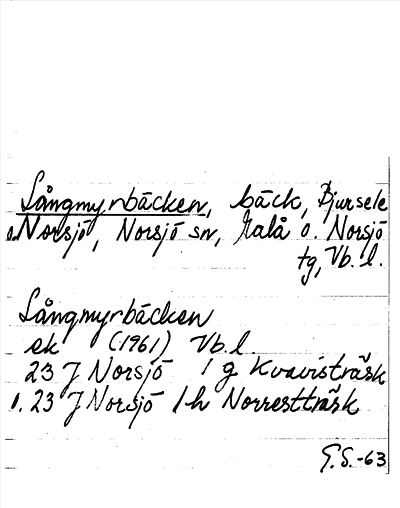 Långmyrbäcken, bäck, Bjursele
o. Norsjö, Norsjö sn, Malå o. Norsjö
tg, Vb. l.
Långmyrbäcken
ek (1961) Vb. l
23 J Norsjö 1 g Kvavisträsk
o. 23 J Norsjö 1 h Norrestträsk
G.S.-63